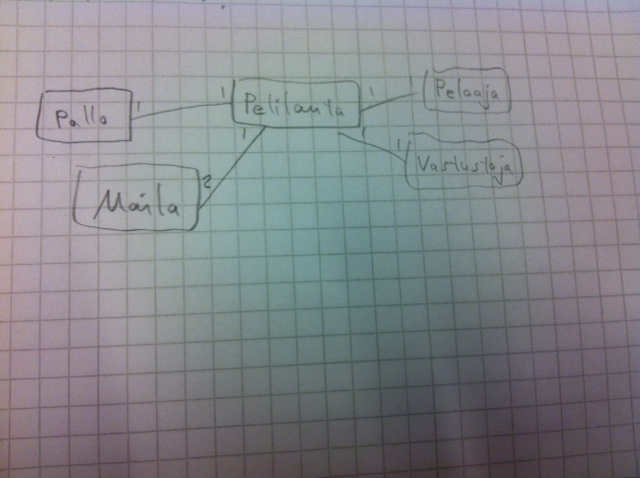 Pallo
1
1
Pelilauta
1
1
Pelaaja
1
1
Vastustaja
1
2
Maila